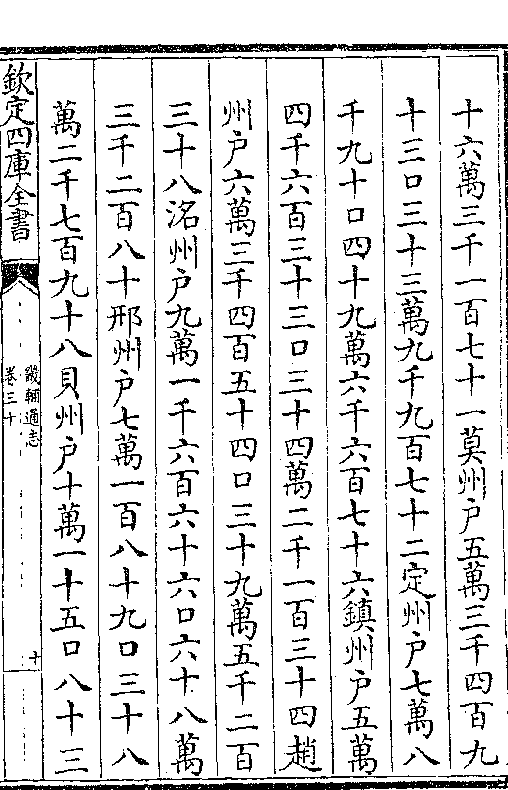 十六萬三千一百七十一莫州户五萬三千四百九
十三口三十三萬九千九百七十二定州户七萬八
千九十口四十九萬六千六百七十六鎮州户五萬
四千六百三十三口三十四萬二千一百三十四趙
州户六萬三千四百五十四口三十九萬五千二百
三十八洺州户九萬一千六百六十六口六十八萬
三千二百八十邢州户七萬一百八十九口三十八
萬二千七百九十八貝州户十萬一十五口八十三
欽定四庫全書
畿輔通志
卷三十
十